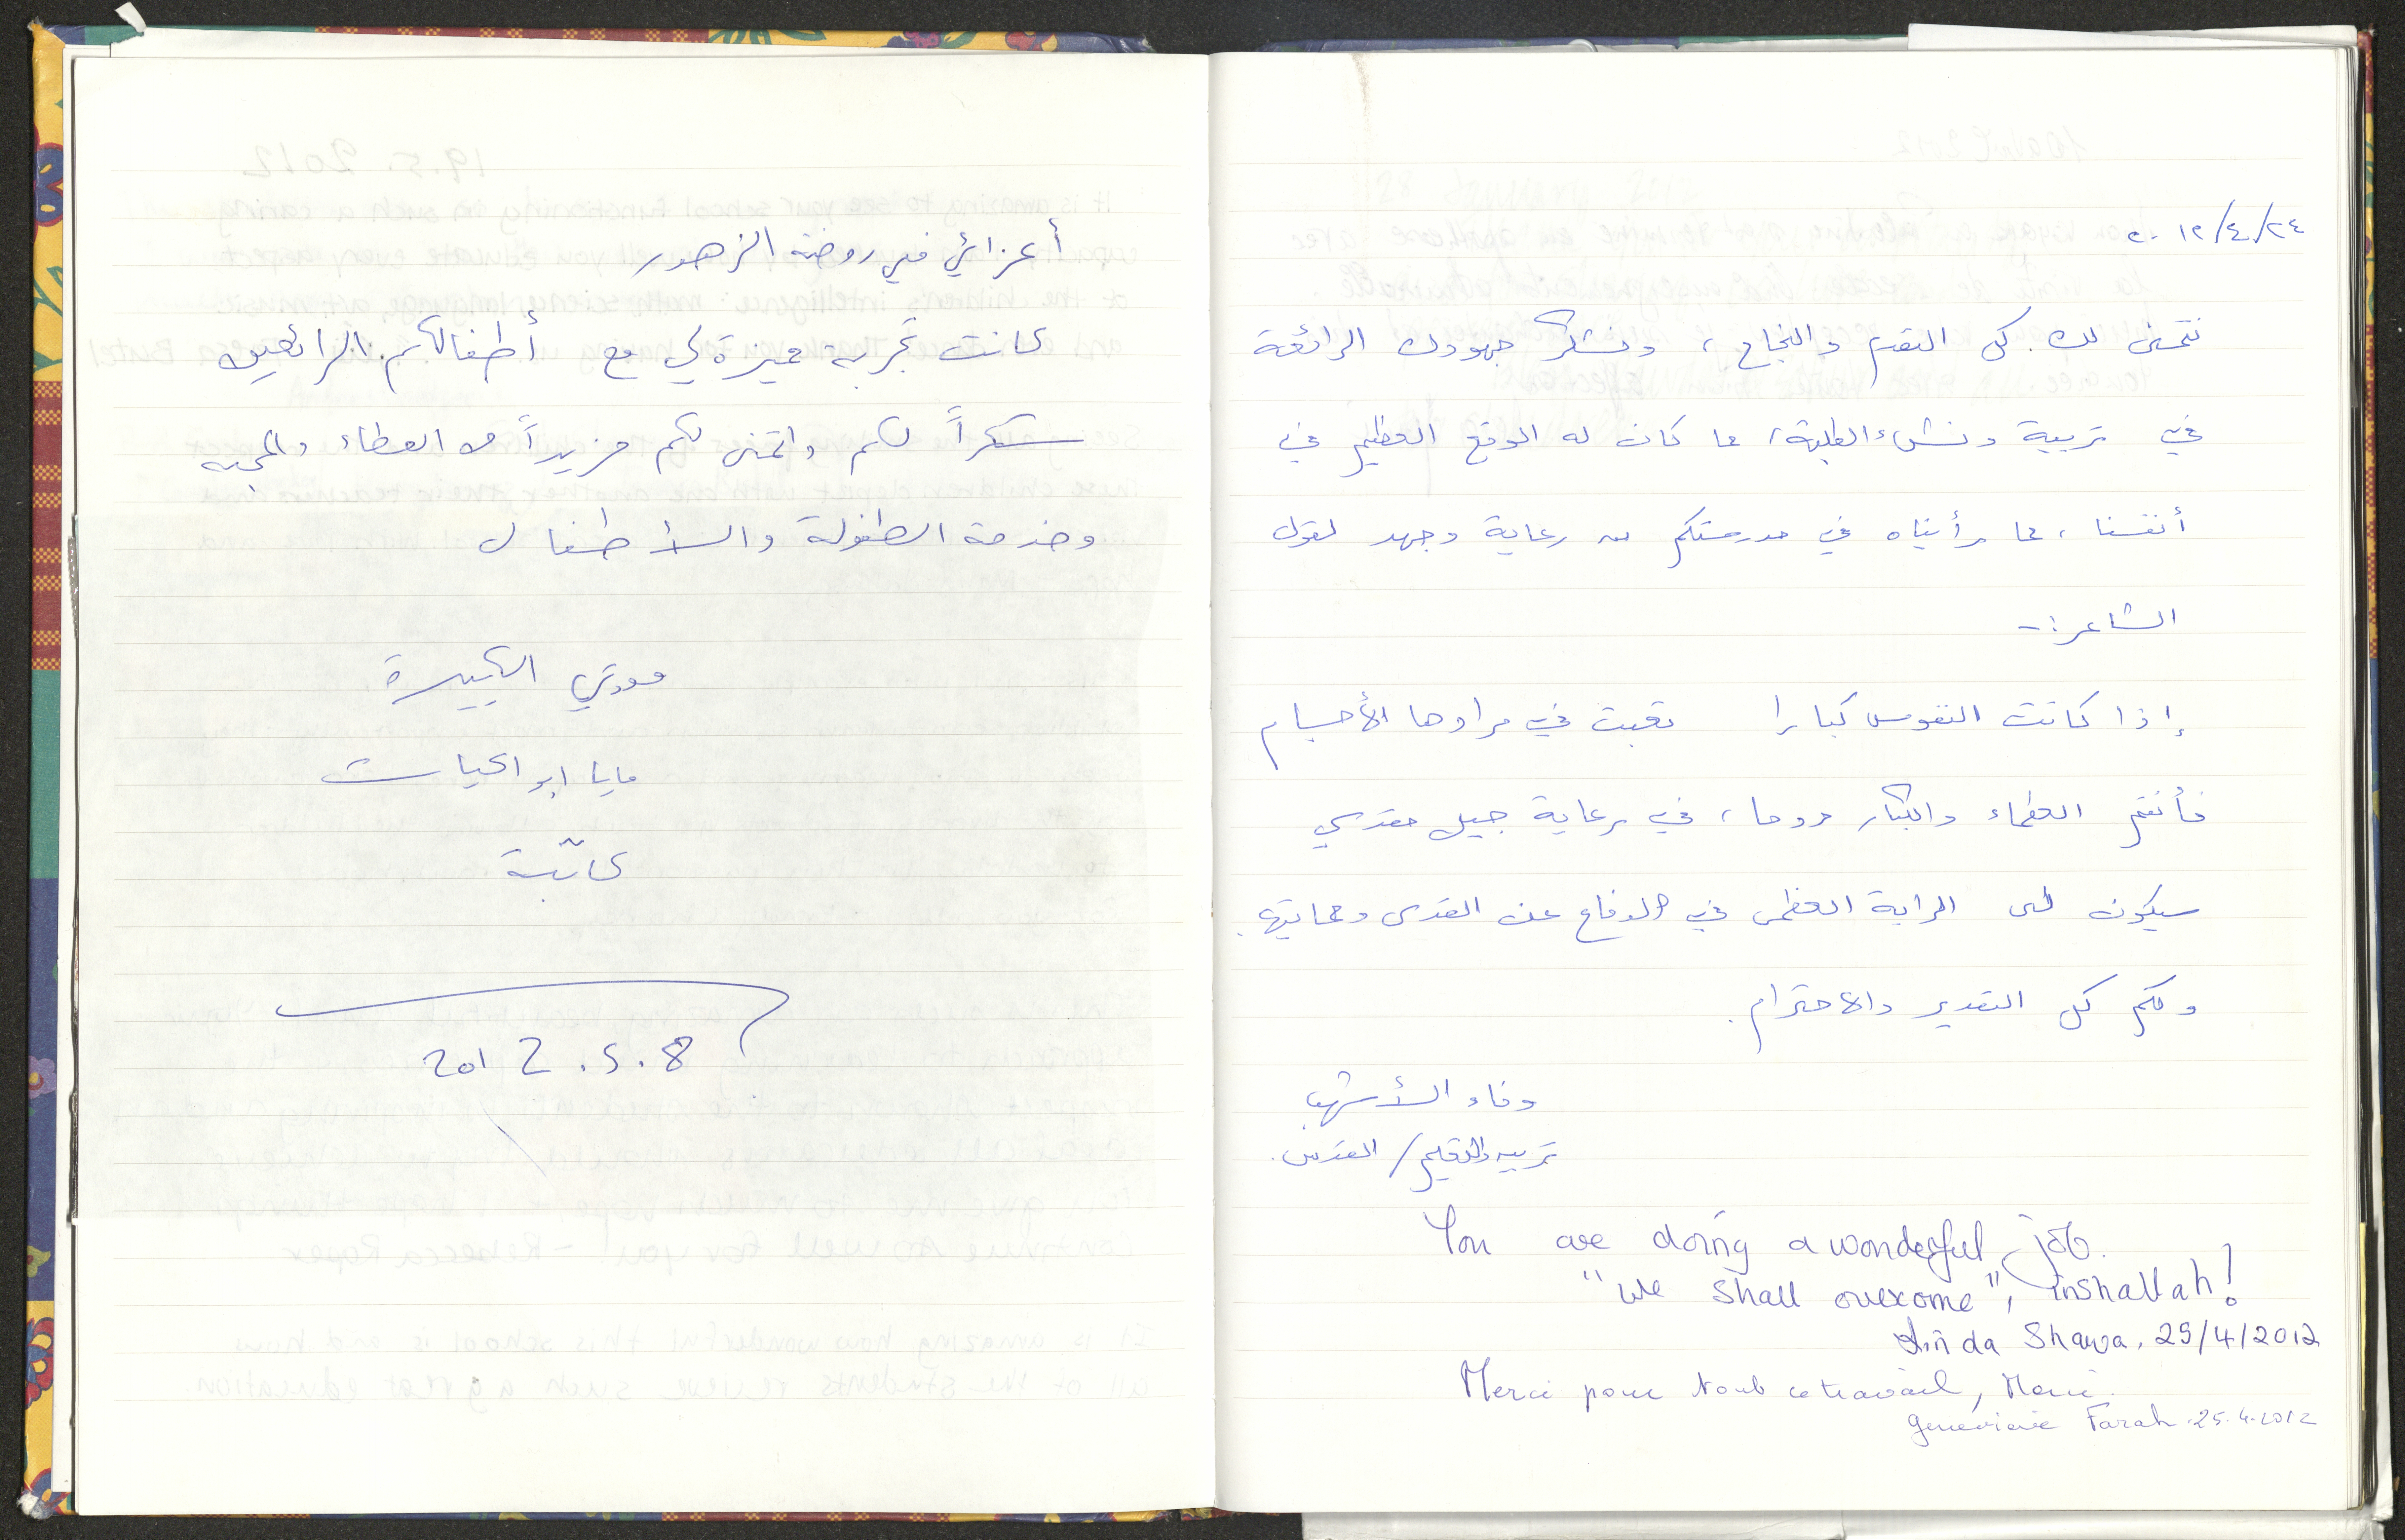 ٢٠١٢/٤/٢٤
نتمنى لك كل التقدم والنجاح، ونشكر جهودك الرائعة
في تربية ونشىء الطلبة، مما كان له الوقع العظيم في
أنفسنا، مما رأيناه في مدرستكم من رعاية وجهد لقول
الشاعر:-
إذا كانت النفوس كبارا تعبت في مرادها الأجسام
فأنتم العظماء والكبار روحا، في رعاية جيل مقدسي
سيكون له الراية العظمى في الدفاع عن القدس وحمايتها.
ولكم كل التقدير والاحترام.
وفاء الأشهب
تربيه والتعليم/ القدس.
You are doing a wonderful job.
"We shall overcome", inshallah!
Linda Shawa. 25/4/2012
Merci pour tout ce travail, Merci.
Geneviève Farah. 25.4.2012
أعزائي في روضة الزهور
كانت تجربة مميزة لي مع أطفالكم الرائعين
شكراً لكم واتمنى لكم مزيداً من العطاء والمحبه
وخدمة الطفولة والأطفال
مودتي الكبيرة
مايا ابو الحيات
كاتبة
2012.5.8